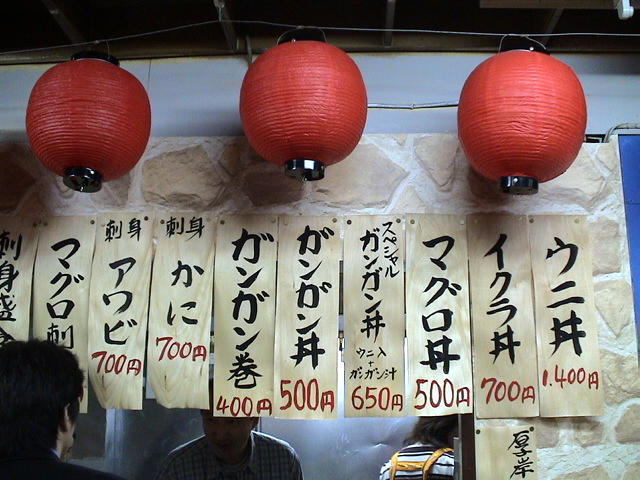 ウニ丼
1.400円
イクラ丼
700円
マグロ丼
500円
スペシャル
ガンガン丼
ウニ入
+
ガンガン汁
650円
ガンガン丼
500円
ガンガン巻
400円
刺身
かに
700円
刺身
アワビ
700円
マグロ刺
刺身盛
厚岸